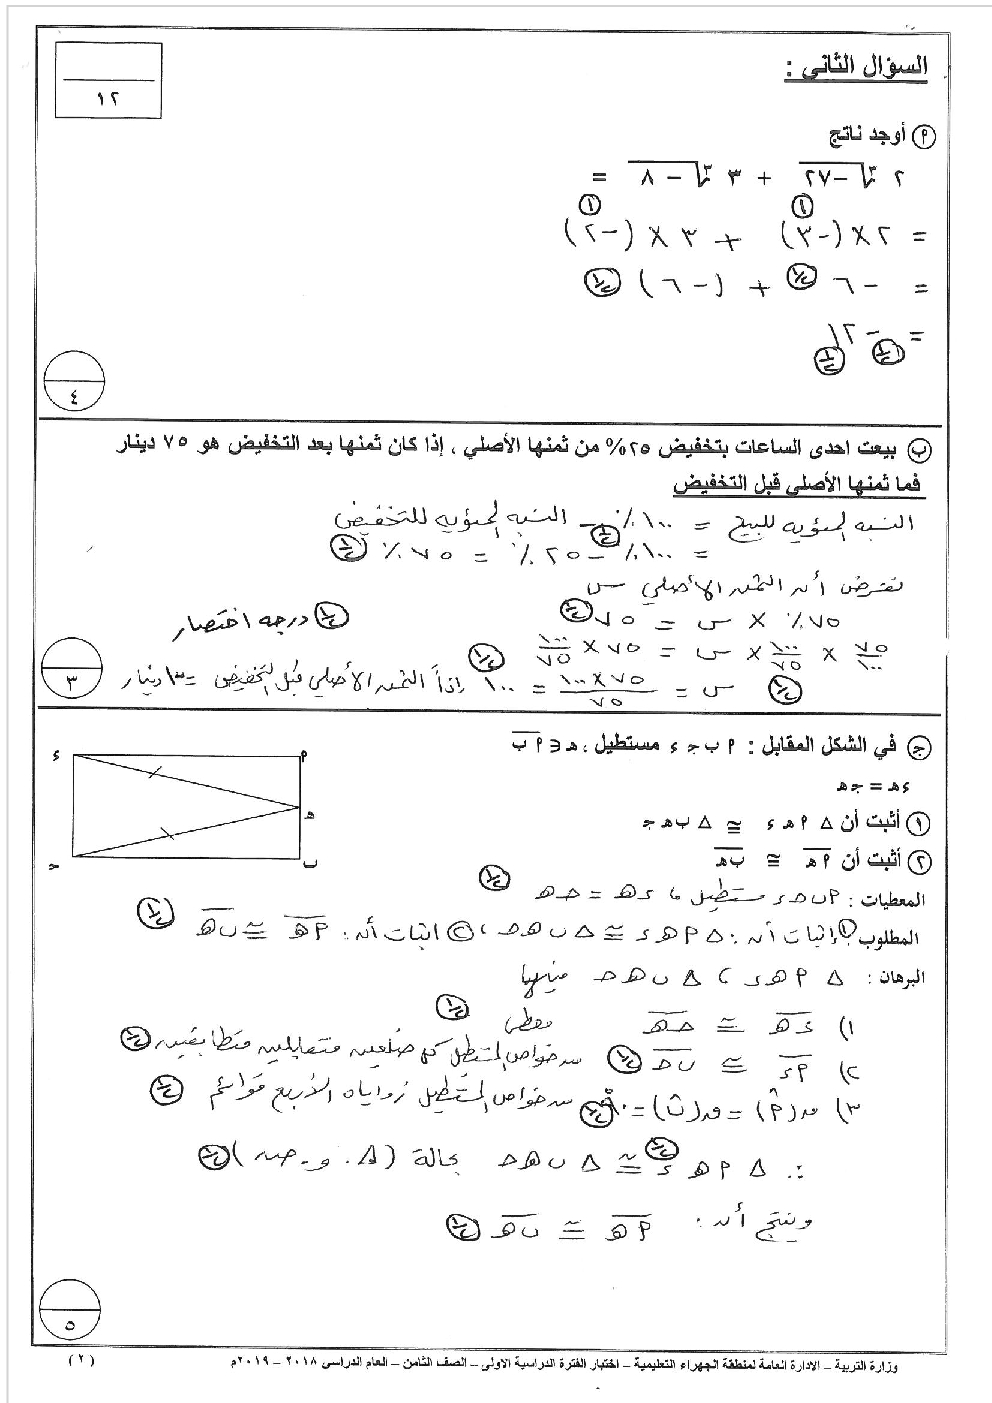 السؤال الثانى :
١٢
أ أوجد ناتج
٢ ∛−٢٧ + ٣ ∛−٨ =
= ٢ × (−٣) + ٣ × (−٢)
١ ١
= −٦ + (−٦)
½ ½
= −١٢
½ ½
٤
ب بيعت احدى الساعات بتخفيض ٢٥% من ثمنها الأصلي ، إذا كان ثمنها بعد التخفيض هو ٧٥ دينار
فما ثمنها الأصلي قبل التخفيض
النسبة المئوية للبيع = ١٠٠٪ − النسبة المئوية للتخفيض
½
= ١٠٠٪ − ٢٥٪ = ٧٥٪ ½
نفترض أن الثمن الأصلي س
٧٥٪ × س = ٧٥ ½
½ درجة اختصار
٧٥/١٠٠ × ١٠٠/٧٥ × س = ٧٥ × ١٠٠/٧٥ ½
½ س = ٧٥ × ١٠٠ / ٧٥ = ١٠٠ إذاً الثمن الأصلي قبل التخفيض = ١٠٠ دينار
٣
ج في الشكل المقابل : أ ب جـ ء مستطيل ، هـ ∈ أب
ء هـ = جـ هـ
١ أثبت أن △ أ هـ ء ≅ △ ب هـ جـ
٢ أثبت أن أهـ ≅ بهـ
ء أ
هـ
حـ ب
المعطيات : أ ب حـ ء مستطيل ، ء هـ = حـ هـ ½
المطلوب : ١ إثبات أن : △ أ هـ ء ≅ △ ب هـ حـ ، ٢ اثبات أن : أهـ ≅ بهـ ½
البرهان : △ أ هـ ء ، △ ب هـ حـ فيهما
١) ءهـ ≅ حـهـ معطى ½
٢) أء ≅ بحـ ½ من خواص المستطيل كل ضلعين متقابلين متطابقين ½
٣) ق(أ) = ق(ب) = ٩٠° ½ من خواص المستطيل زواياه الأربع قوائم ½
∴ △ أ هـ ء ≅ △ ب هـ حـ بحالة (△. و. ض) ½
½
وينتج أن : أهـ ≅ بهـ ½
٥
وزارة التربية – الادارة العامة لمنطقة الجهراء التعليمية – اختبار الفترة الدراسية الاولى – الصف الثامن – العام الدراسى ٢٠١٨ – ٢٠١٩م
(٢)